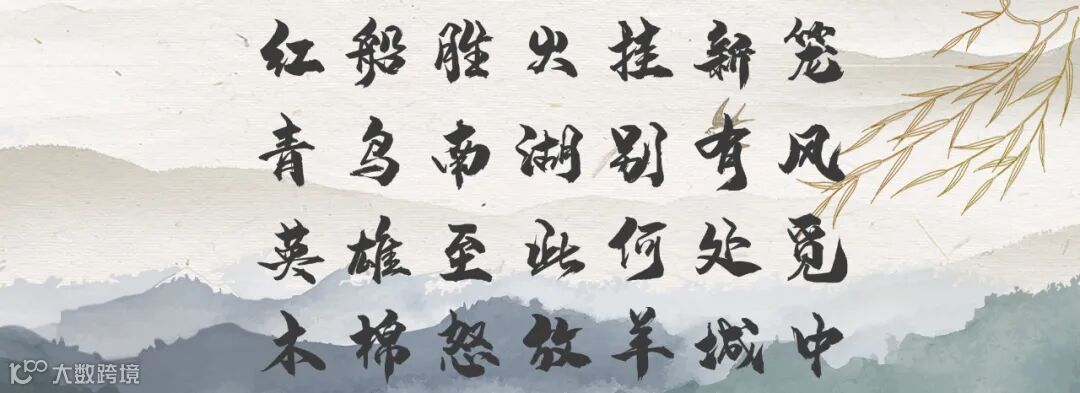 红船胜火挂新笼
青鸟南湖别有风
英雄至此何处觅
木棉怒放羊城中
大数跨境